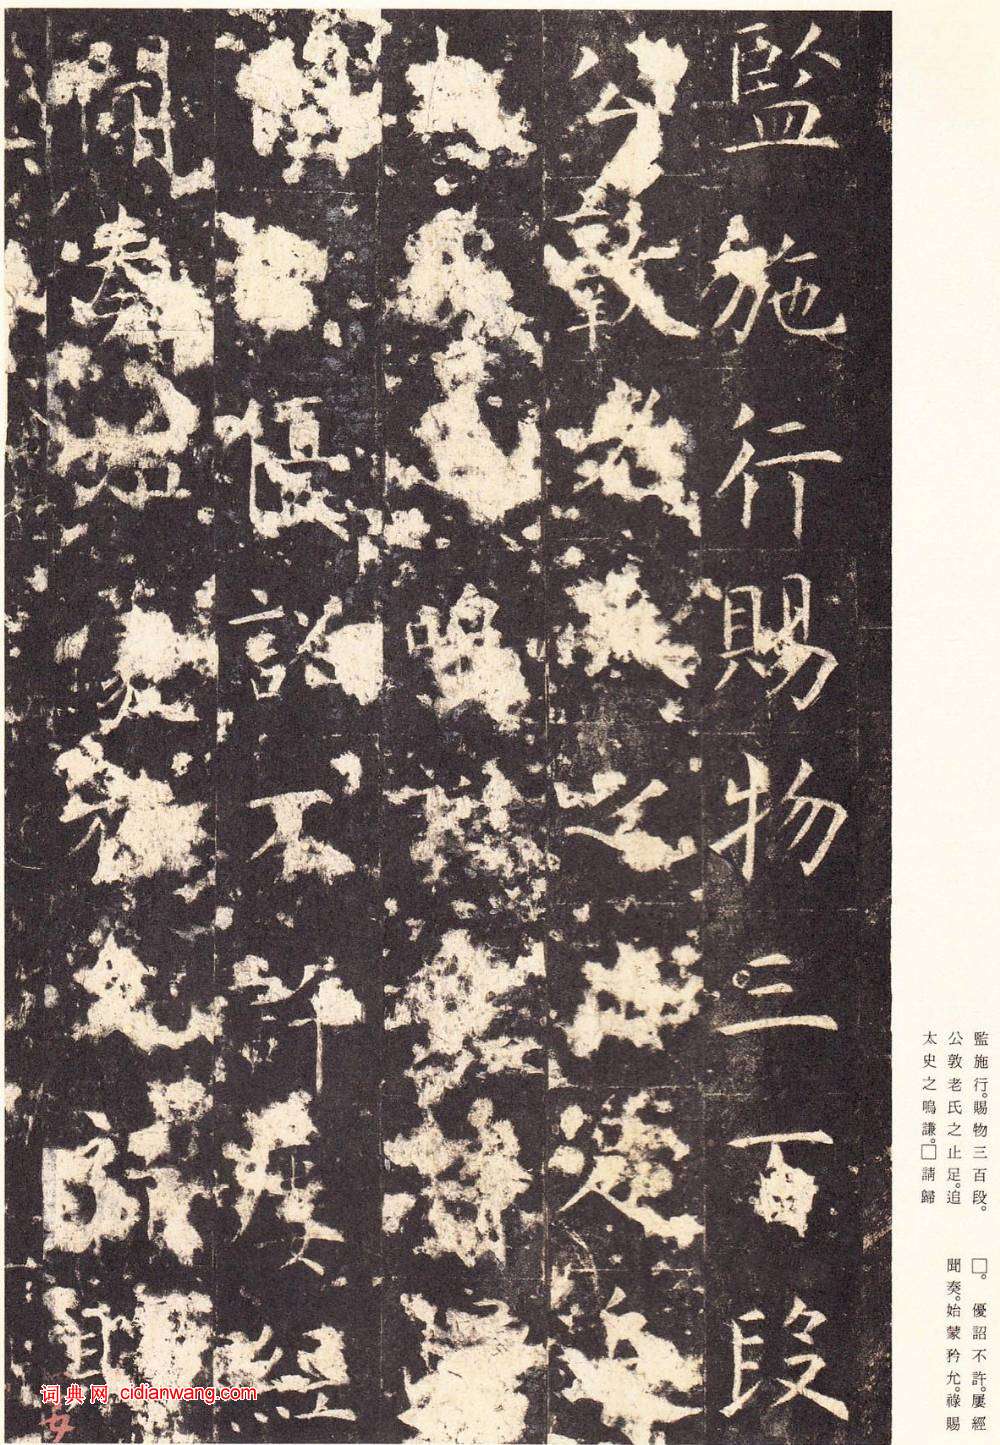 監施行賜物三百段
公敦老氏之止足追
太史之鳴謙請歸
優詔不許屢經
聞奏始蒙矜允祿賜
監施行。賜物三百段。
公敦老氏之止足。追
太史之鳴謙。□請歸
□。優詔不許。屢經
聞奏。始蒙矜允。祿賜
词典网 cidianwang.com